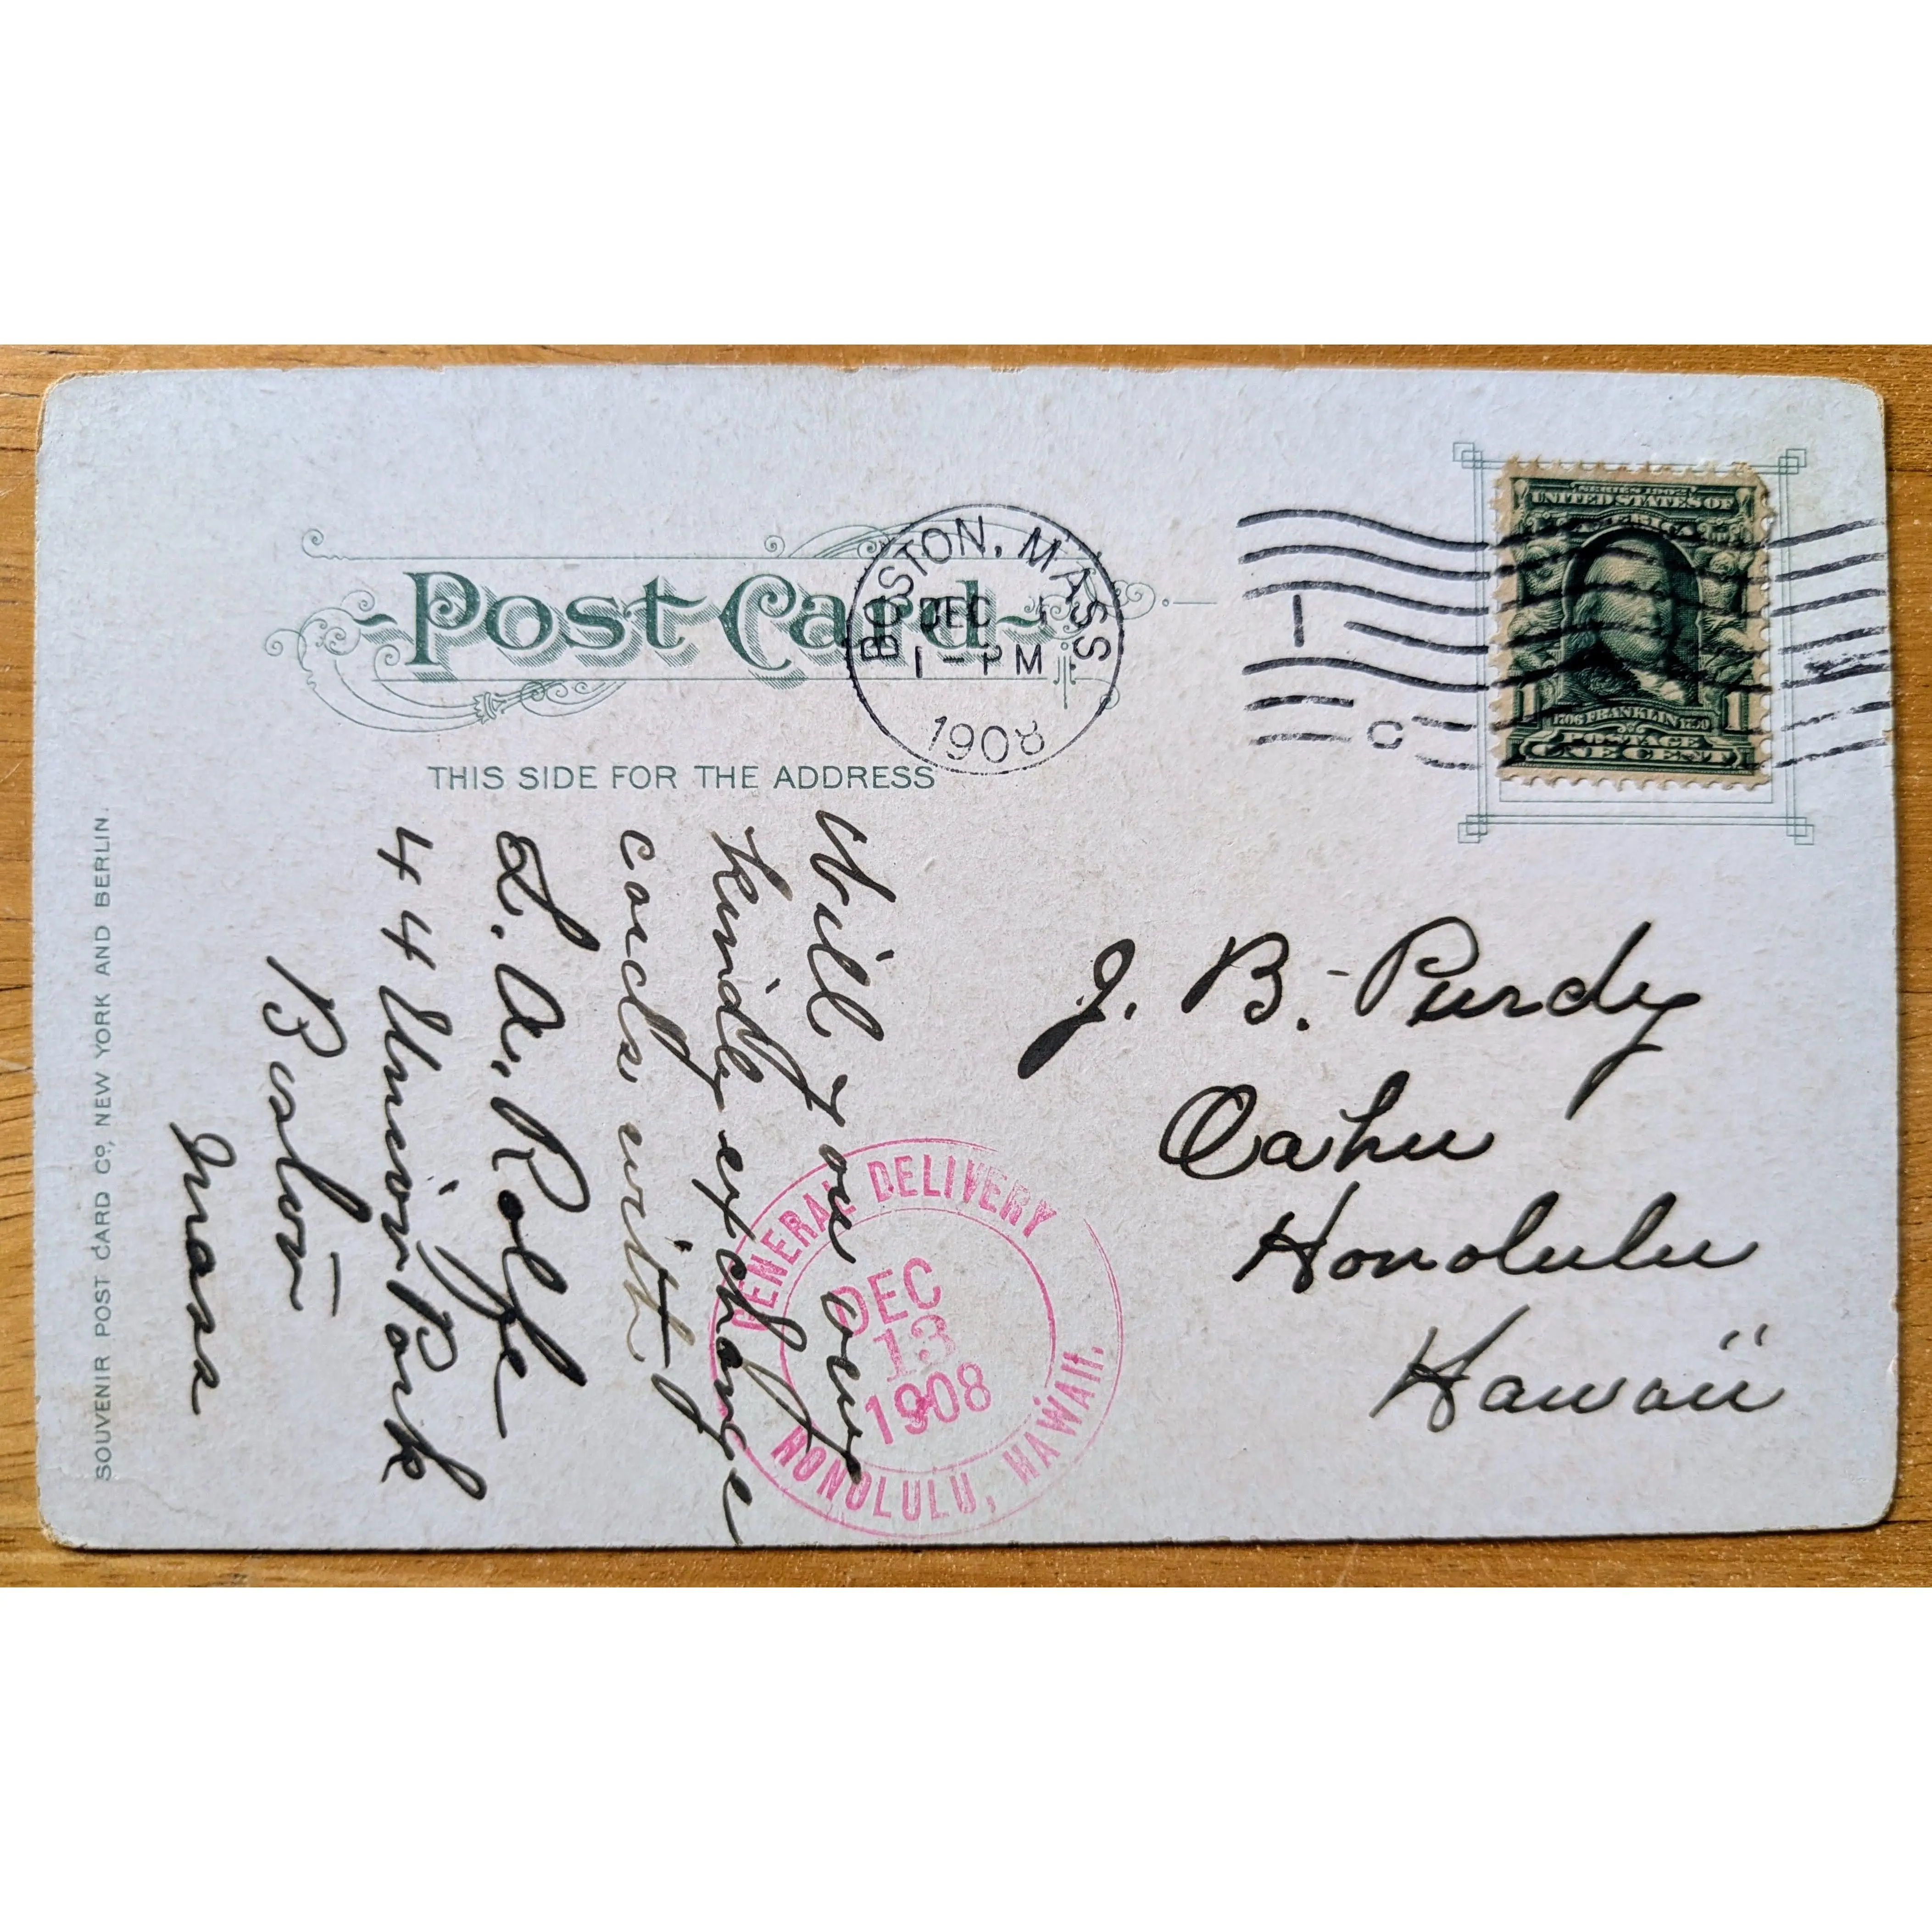 Post Card
THIS SIDE FOR THE ADDRESS
BOSTON, MASS.
DEC 1
1-PM
1908
1
C
SERIES 1902
UNITED STATES OF
AMERICA
1706 FRANKLIN 1790
POSTAGE
1 ONE CENT 1
J. B. Purdy
Oahu
Honolulu
Hawaii
Will you
kindly exchange
cards with
L. A. Rolfe
44 Union Park
Boston
Mass
GENERAL DELIVERY
DEC
13
1908
HONOLULU, HAWAII.
SOUVENIR POST CARD Co, NEW YORK AND BERLIN.